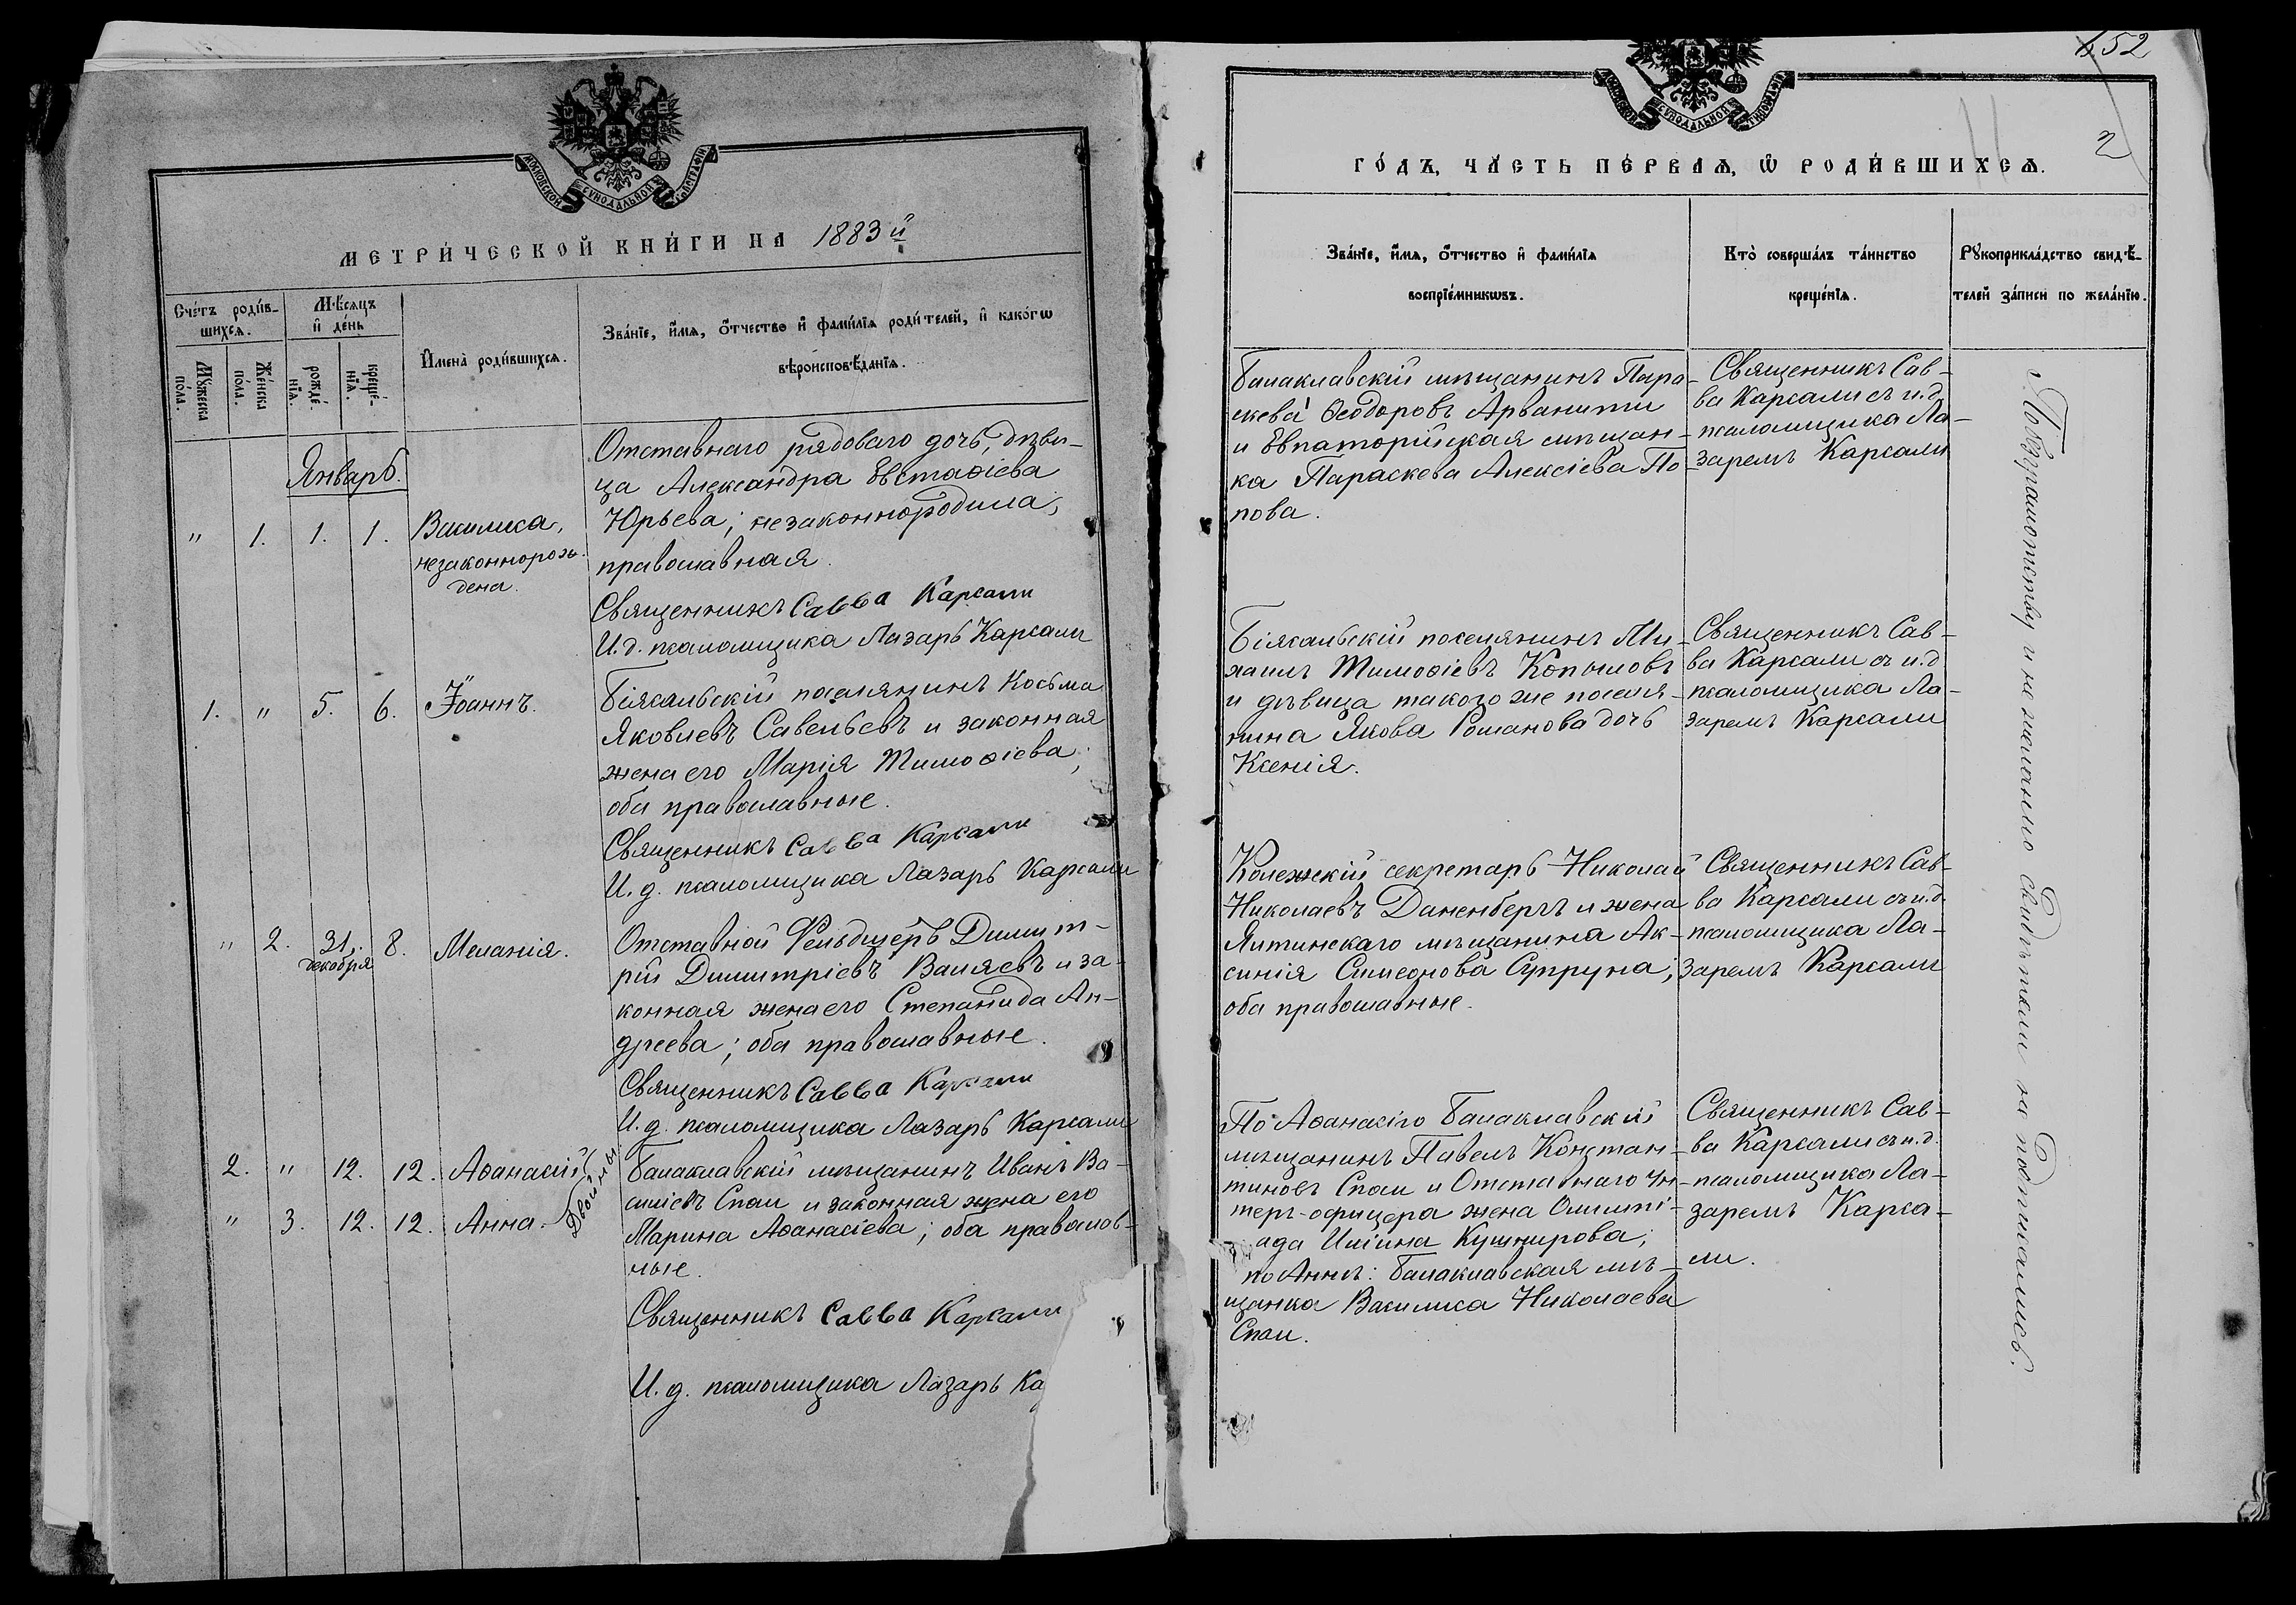 МОСКОВСКОЙ СѴНОДАЛЬНОЙ ТИПОГРАФІИ
МЕТРИ́ЧЕСКОЙ КНИ́ГИ НА 1883й
Сче́тъ роди́в-
шихся.
Мѣ́сяцъ
и де́нь
Му́жеска
по́ла.
Же́нска
по́ла.
рожде́-
нїя.
креще́-
нїя.
Имена̀ роди́вшихся.
Зва́нїе, и́мя, о́тчество и фами́лїя роди́телей, и како́гѡ
вѣроисповѣ́данїя.
Январь.
" 1. 1. 1. Василиса,
незаконнорож-
дена.
Отставнаго рядоваго дочь, дѣви-
ца Александра Евстаѳіева
Юрьева; незаконнородила,
православная.
Священникъ Савва Карсали
И. д. псаломщика Лазарь Карсали
1. " 5. 6. Іоаннъ.
Біясальскій поселянинъ Косьма
Яковлевъ Савельевъ и законная
жена его Марія Тимоѳіева;
оба православные.
Священникъ Савва Карсали
И. д. псаломщика Лазарь Карсали
" 2. 31. 8. Меланія.
декабря
Отставной Фельдшеръ Димит-
рій Димитріевъ Валяевъ и за-
конная жена его Степанида Ан-
дреева; оба православные.
Священникъ Савва Карсали
И. д. псаломщика Лазарь Карсали
2. " 12. 12. Аѳанасій
" 3. 12. 12. Анна.
Двойни
Балаклавскій мѣщанинъ Иванъ Ва-
силіевъ Спаи и законная жена его
Марина Аѳанасіева; оба православ-
ные.
Священникъ Савва Карсали
И. д. псаломщика Лазарь Ка
652
2
МОСКОВСКОЙ СѴНОДАЛЬНОЙ ТИПОГРАФІИ
ГО́ДЪ, ЧА́СТЬ ПЕ́РВАЯ, Ѡ РОДИ́ВШИХСЯ.
Зва́нїе, и́мя, о́тчество и фами́лїя
воспрїе́мникѡвъ.
Кто̀ соверша́лъ та́инство
креще́нїя.
Рꙋкоприкла́дство свидѣ́-
телей за́писи по жела́нїю.
Балаклавскій мѣщанинъ Пара-
скева Ѳеодоровъ Арванити
и Евпаторійская мѣщан-
ка Параскева Алексіева По-
пова.
Священникъ Сав-
ва Карсали съ и.д.
псаломщика Ла-
заремъ Карсали
Біясальскій поселянинъ Ми-
хаилъ Тимоѳіевъ Копыловъ
и дѣвица такого же поселя-
нина Якова Романова дочь
Ксенія.
Священникъ Сав-
ва Карсали съ и.д
псаломщика Ла-
заремъ Карсали
Колежскій секретарь Николай
Николаевъ Даненбергъ и жена
Ялтинскаго мѣщанина Ак-
синія Симеонова Супруна;
оба православные.
Священникъ Сав-
ва Карсали съ и.д.
псаломщика Ла-
заремъ Карсали
По Аѳанасію Балаклавскій
мѣщанинъ Павелъ Констан-
тиновъ Спаи и Отставнаго Ун-
теръ-офицера жена Олимпі-
ада Иліина Кушнирова;
по Аннѣ: Балаклавская мѣ-
щанка Василиса Николаева
Спаи.
Священникъ Сав-
ва Карсали съ и.д.
псаломщика Ла-
заремъ Карса-
ли.
По безграмотству и не желанію свидѣтели не подписались.